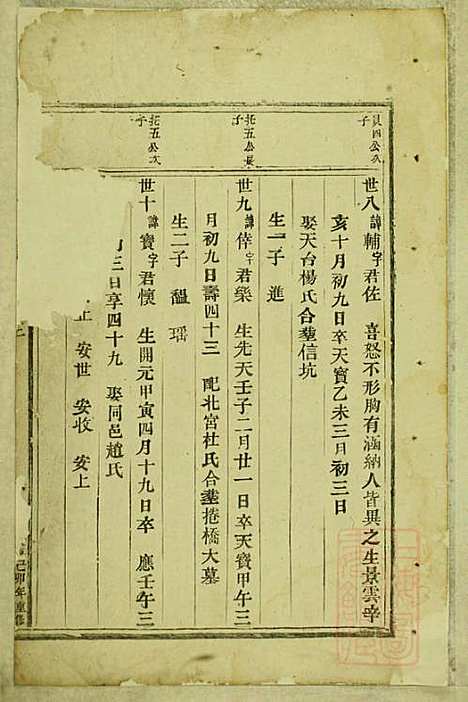 貝四公次子
世八 諱輔字君佐 喜怒不形胸有涵納人皆異之生景雲辛
亥十月初九日卒天寶乙未三月初三日
娶天台楊氏合塟信坑
生一子 進
托五公長子
世九 諱倖字君榮 生先天壬子二月廿一日卒天寶甲午三
月初九日壽四十三 配北宮杜氏合塟捲橋大墓
生二子 瑥 瑶
托五公次子
世十 諱寶字君懷 生開元甲寅四月十九日卒 應壬午三
三日享四十九 娶同邑趙氏
安世 安收 安上
己卯年重修